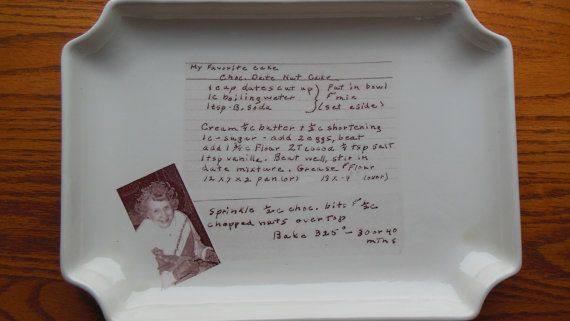 My Favorite Cake
Choc. Date Nut Cake
1 cup dates cut up } Put in bowl
1c boiling water } & mix
1 tsp B. Soda } (set aside)
Cream ¼c butter + ½c shortening
1c - sugar - add 2 eggs, beat
add 1 ¾c Flour 2T cocoa ½ tsp salt
1 tsp vanilla. Beat well, stir in
date mixture. Grease & Flour
12 x 7 x 2 pan (or) 13 x - 9 (over)
Sprinkle ½c choc. bits & ½c
chopped nuts over top
Bake 325° - 30 or 40
mins